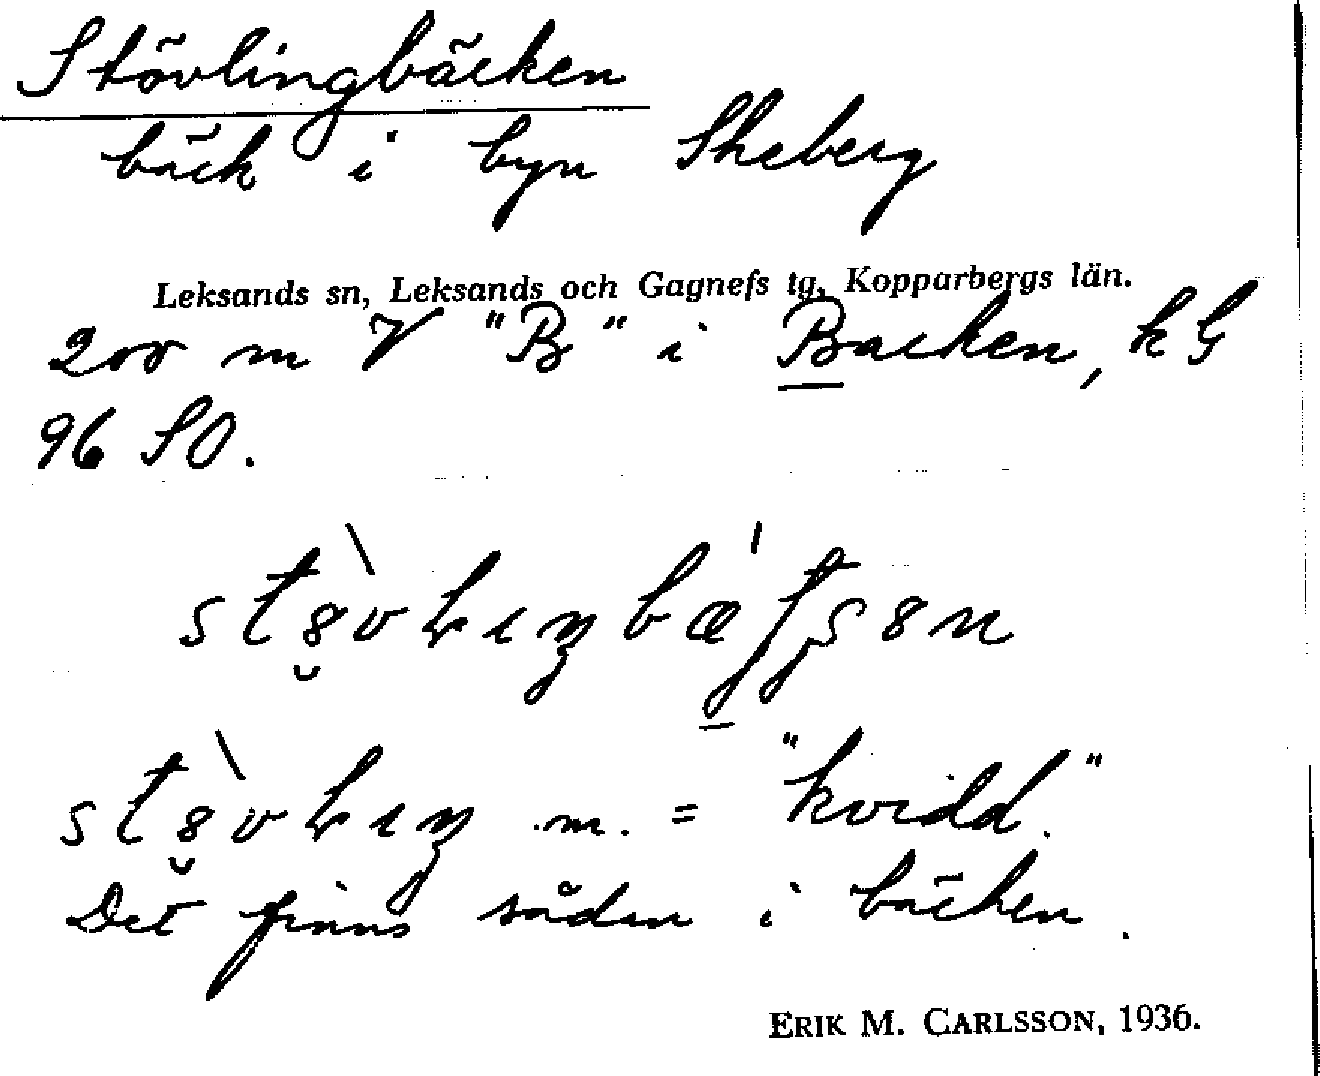 Stövlingbäcken
bäck i byn Skeberg
Leksands sn, Leksands och Gagnefs tg, Kopparbergs län.
200 m V "B" i Backen, kG
96 SO.
m. = "kvidd."
Det finns såden i bäcken.
ERIK M. CARLSSON, 1936.